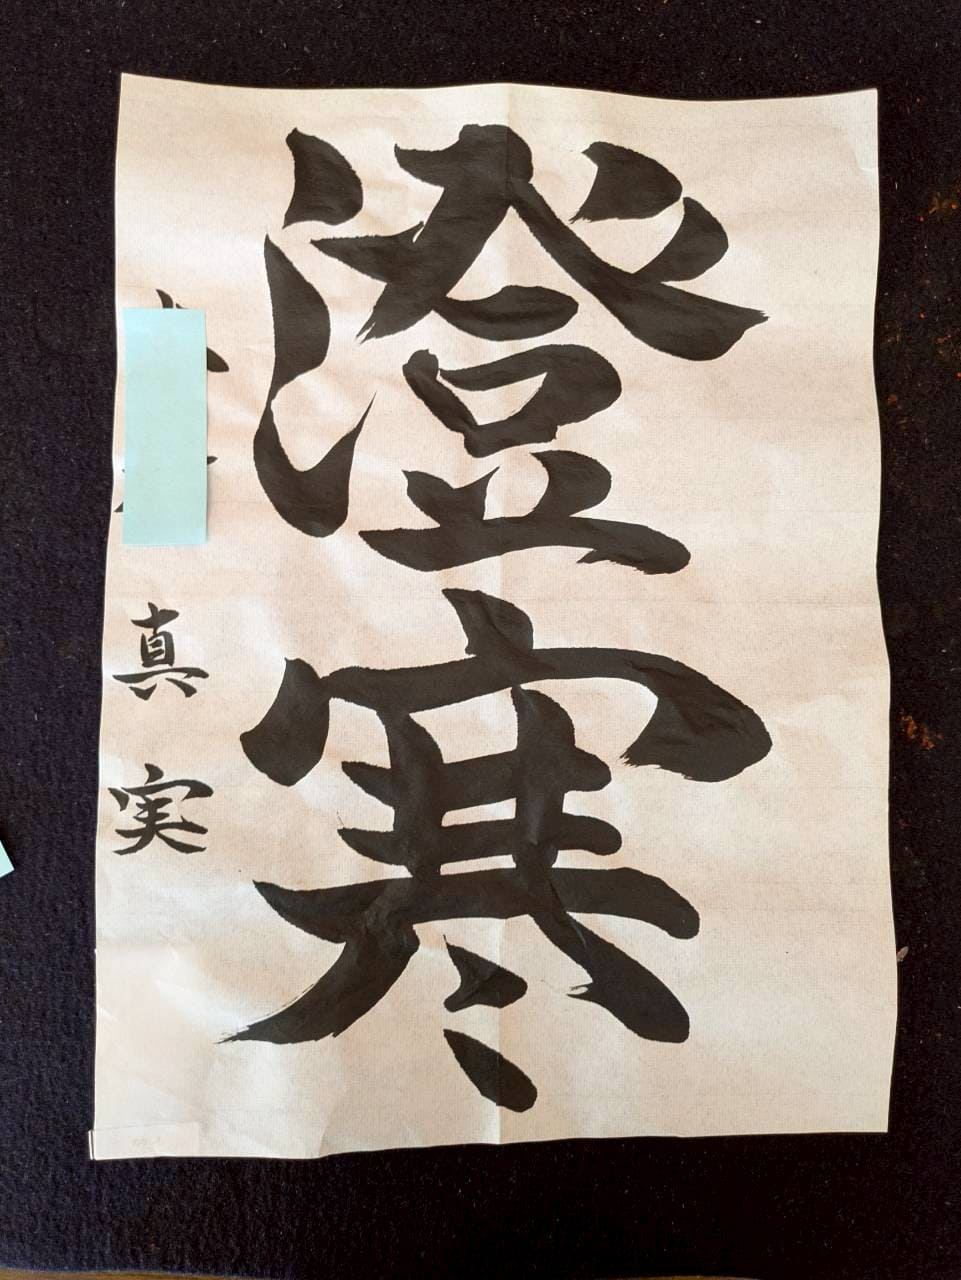 澄寒
真実